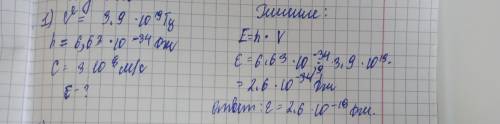 1) ν = 3,9 · 10¹⁹ Гц
h = 6,63 · 10⁻³⁴ Дж
C = 3 · 10⁸ м/с
E - ?
Решение:
E = h · V
E = 6,63 · 10⁻³⁴ · 3,9 · 10¹⁹ =
= 2,6 · 10⁻³⁴ · ¹⁹ Дж
ответ: ε = 2,6 · 10⁻¹⁸ Дж.